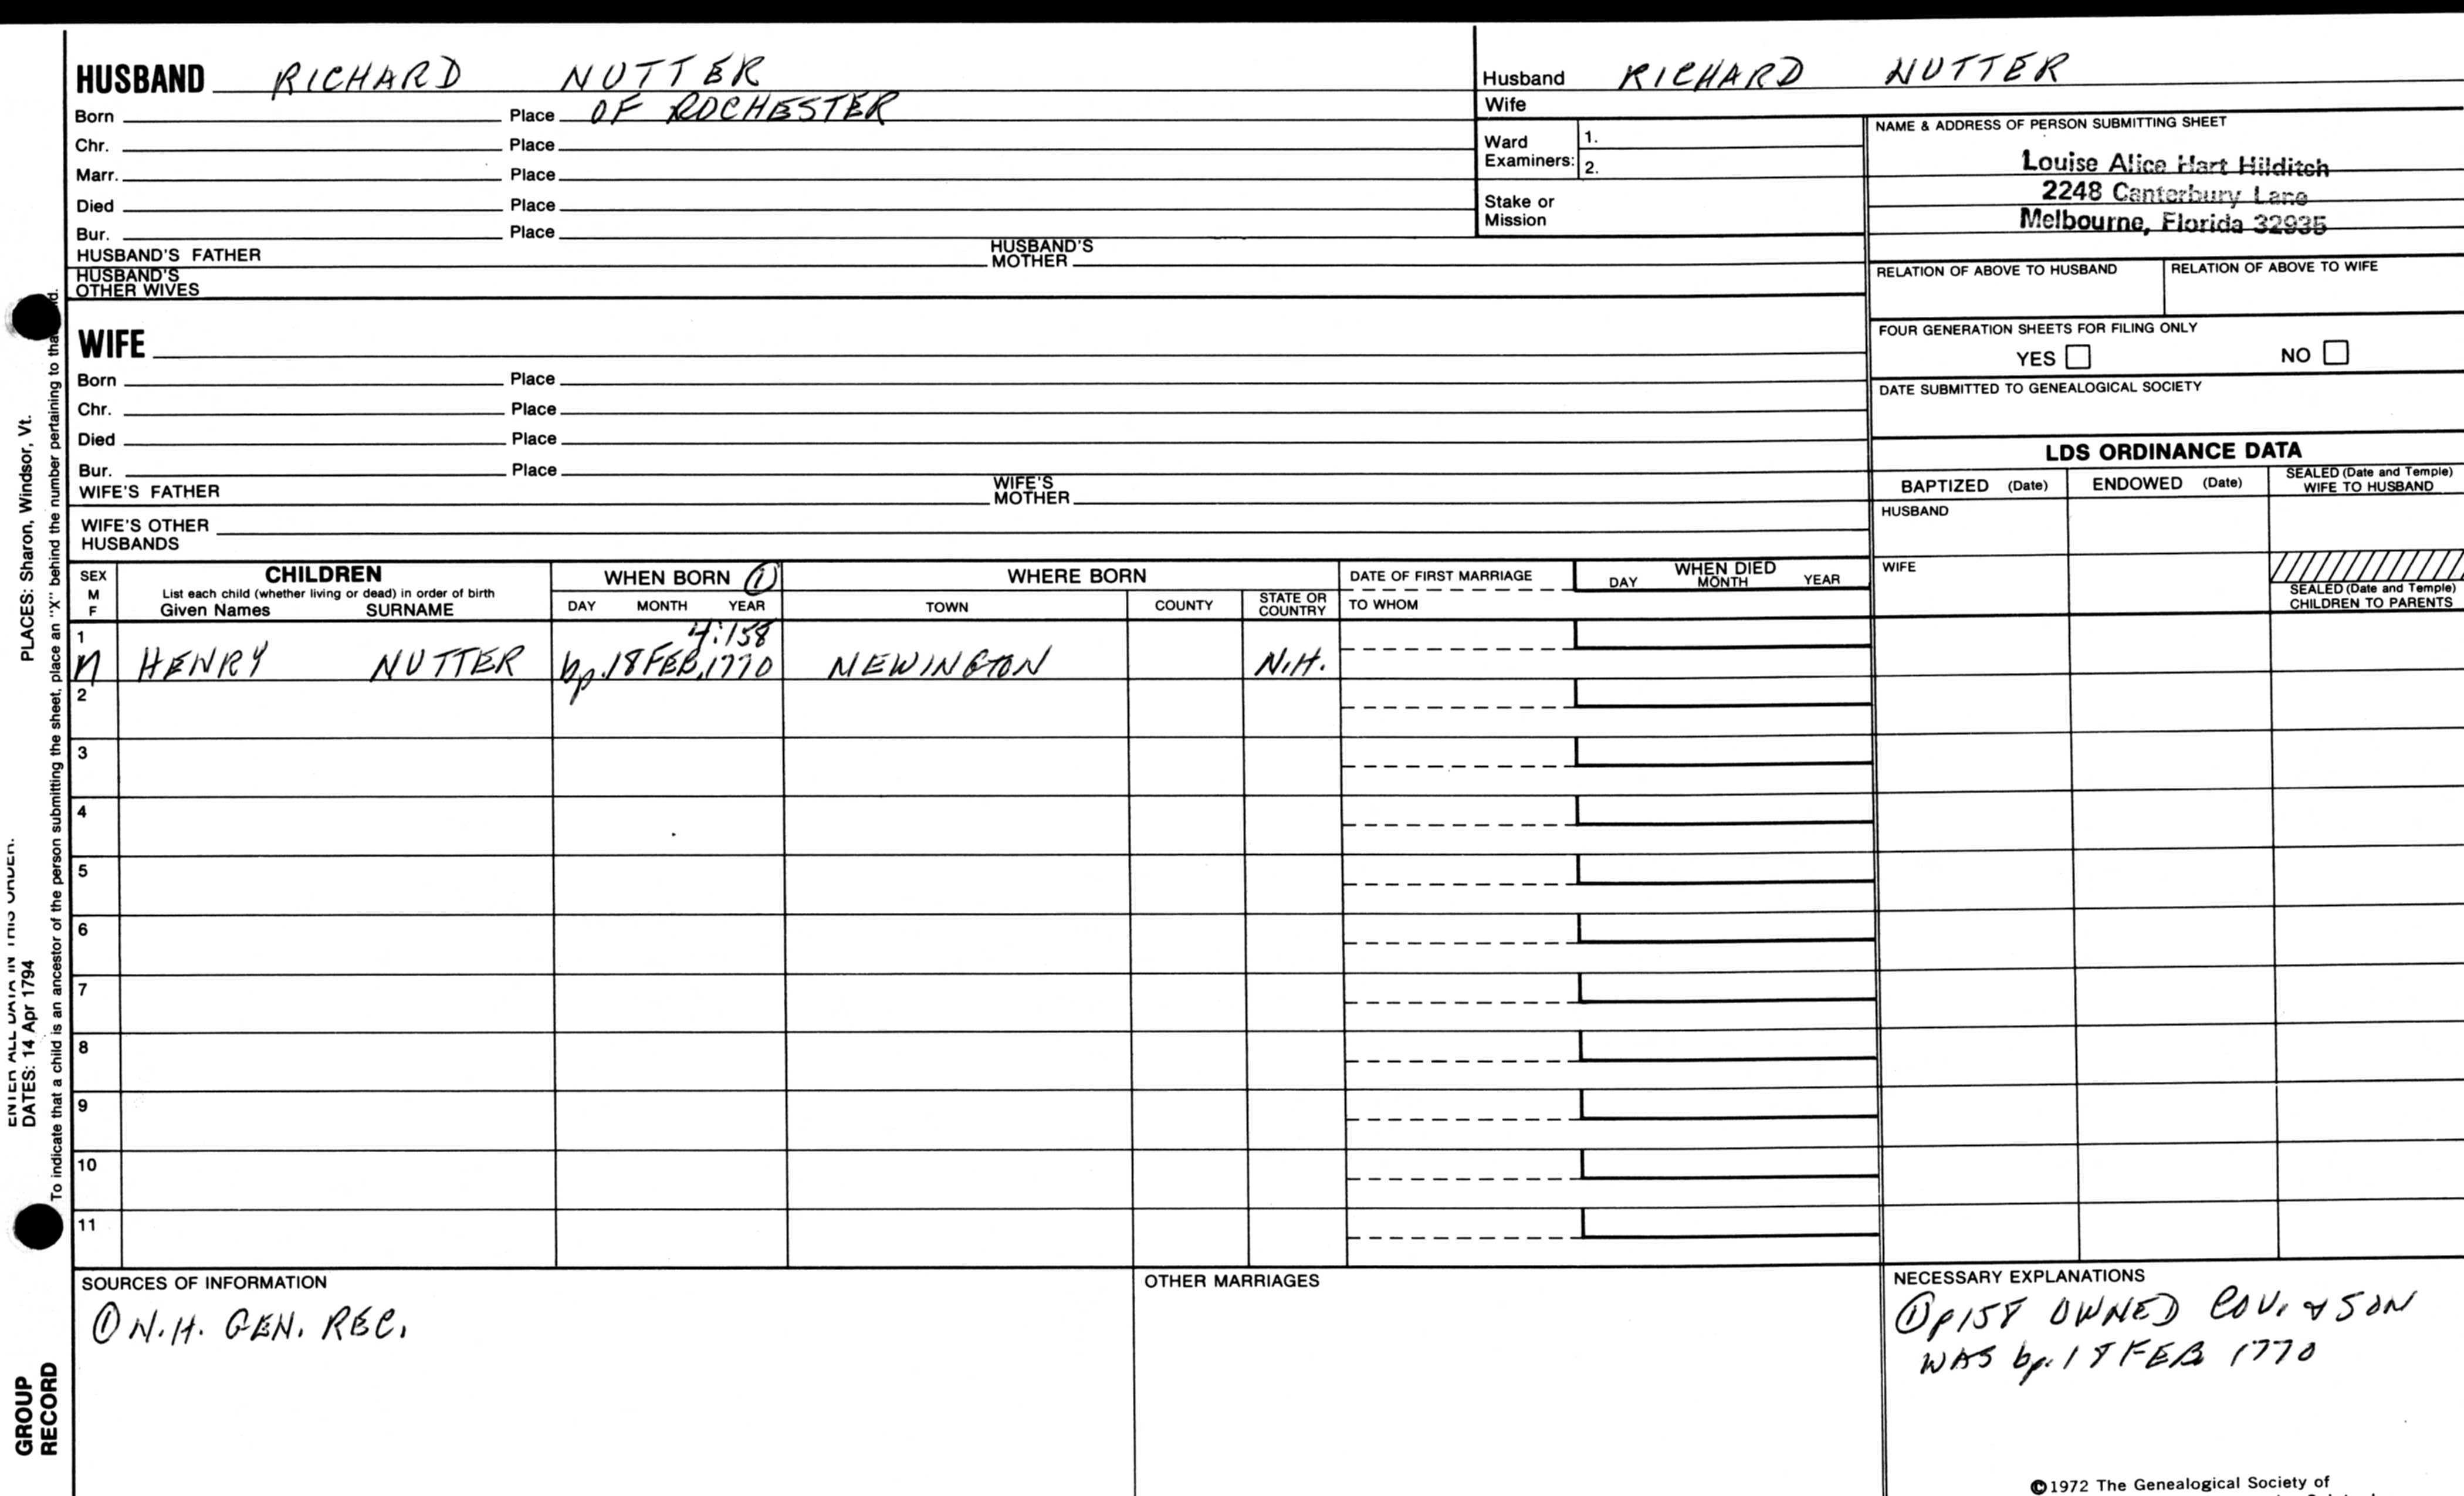 HUSBAND RICHARD NUTTER
Born Place OF ROCHESTER
Chr. Place
Marr. Place
Died Place
Bur. Place
HUSBAND'S FATHER HUSBAND'S MOTHER
HUSBAND'S OTHER WIVES
Husband RICHARD NUTTER
Wife
Ward Examiners: 1.
2.
Stake or Mission
NAME & ADDRESS OF PERSON SUBMITTING SHEET
Louise Alice Hart Hilditch
2248 Canterbury Lane
Melbourne, Florida 32935
RELATION OF ABOVE TO HUSBAND RELATION OF ABOVE TO WIFE
FOUR GENERATION SHEETS FOR FILING ONLY
YES NO
DATE SUBMITTED TO GENEALOGICAL SOCIETY
WIFE
Born Place
Chr. Place
Died Place
Bur. Place
WIFE'S FATHER WIFE'S MOTHER
WIFE'S OTHER HUSBANDS
LDS ORDINANCE DATA
BAPTIZED (Date) ENDOWED (Date) SEALED (Date and Temple) WIFE TO HUSBAND
HUSBAND
WIFE
SEALED (Date and Temple) CHILDREN TO PARENTS
SEX M F
CHILDREN
List each child (whether living or dead) in order of birth
Given Names SURNAME
WHEN BORN ①
DAY MONTH YEAR
WHERE BORN
TOWN COUNTY STATE OR COUNTRY
DATE OF FIRST MARRIAGE
TO WHOM
WHEN DIED
DAY MONTH YEAR
1 4:158
M HENRY NUTTER bp. 18 FEB, 1770 NEWINGTON N.H.
2
3
4
5
6
7
8
9
10
11
SOURCES OF INFORMATION
① N.H. GEN. REC.
OTHER MARRIAGES
NECESSARY EXPLANATIONS
① p158 OWNED COV. & SON
WAS bp. 18 FEB 1770
©1972 The Genealogical Society of
PLACES: Sharon, Windsor, Vt.
ENTER ALL DATA IN THIS ORDER.
DATES: 14 Apr 1794
To indicate that a child is an ancestor of the person submitting the sheet, place an "X" behind the number pertaining to
GROUP
RECORD